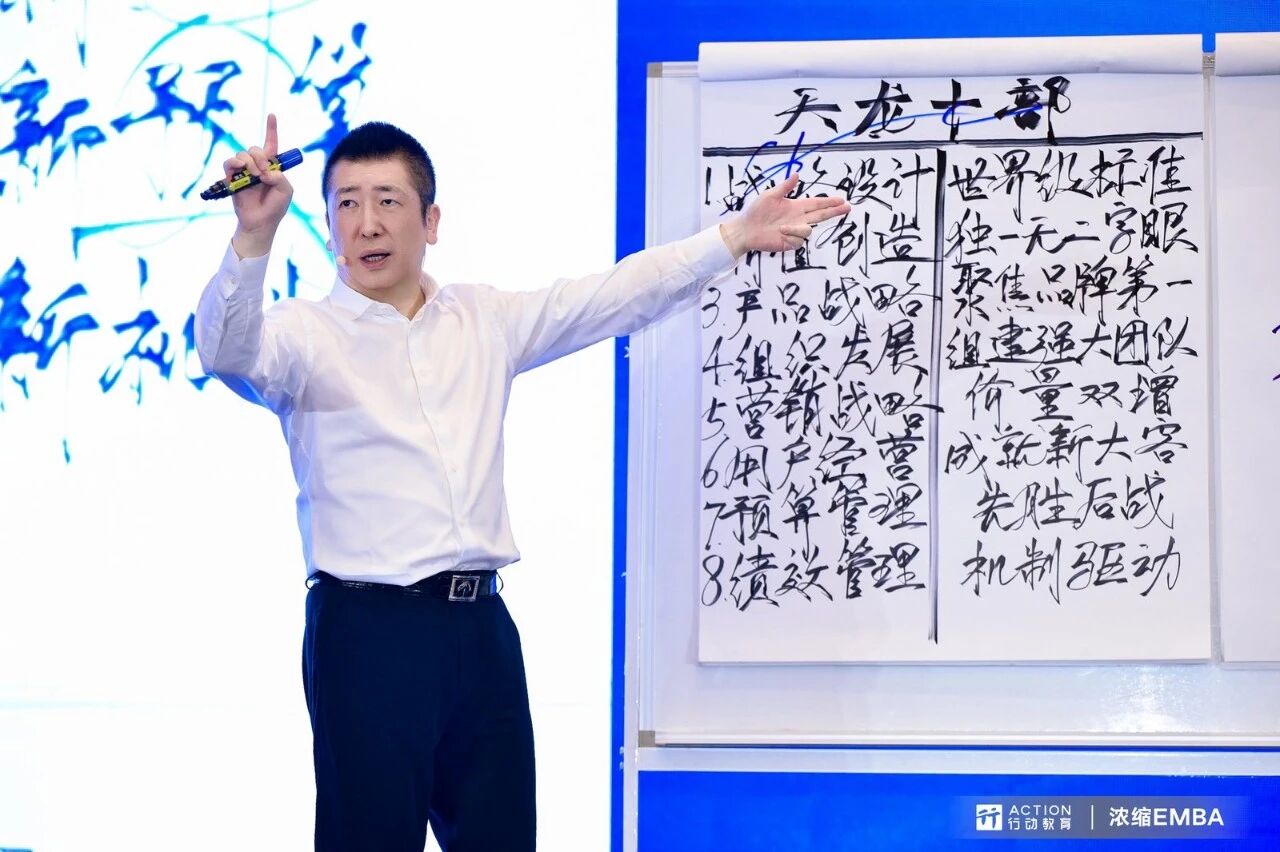 新预算
新机
天龙十部
1.战略设计 世界级标准
值创造 独一无二字眼
3.产品战略 聚焦品牌第一
4.组织发展 组建强大团队
5.营销战略 价量双增
6.用户经营 成就新大客
7.预算管理 先胜后战
8.绩效管理 机制驱动
ACTION
行动教育
浓缩EMBA